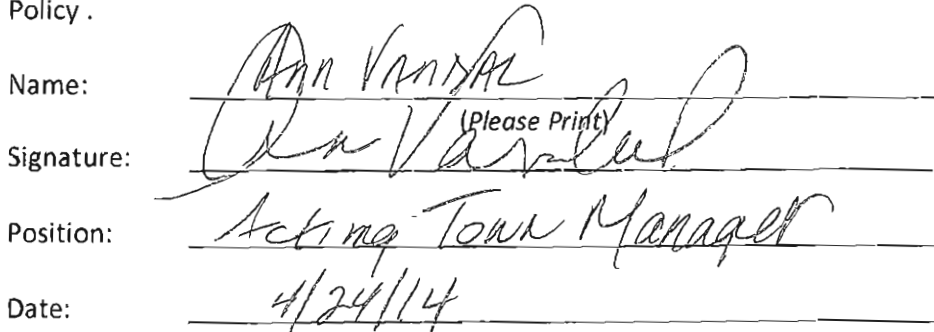 Policy .
Name: Ann Vandal
(Please Print)
Signature: Ann Vandal
Position: Acting Town Manager
Date: 4/24/14